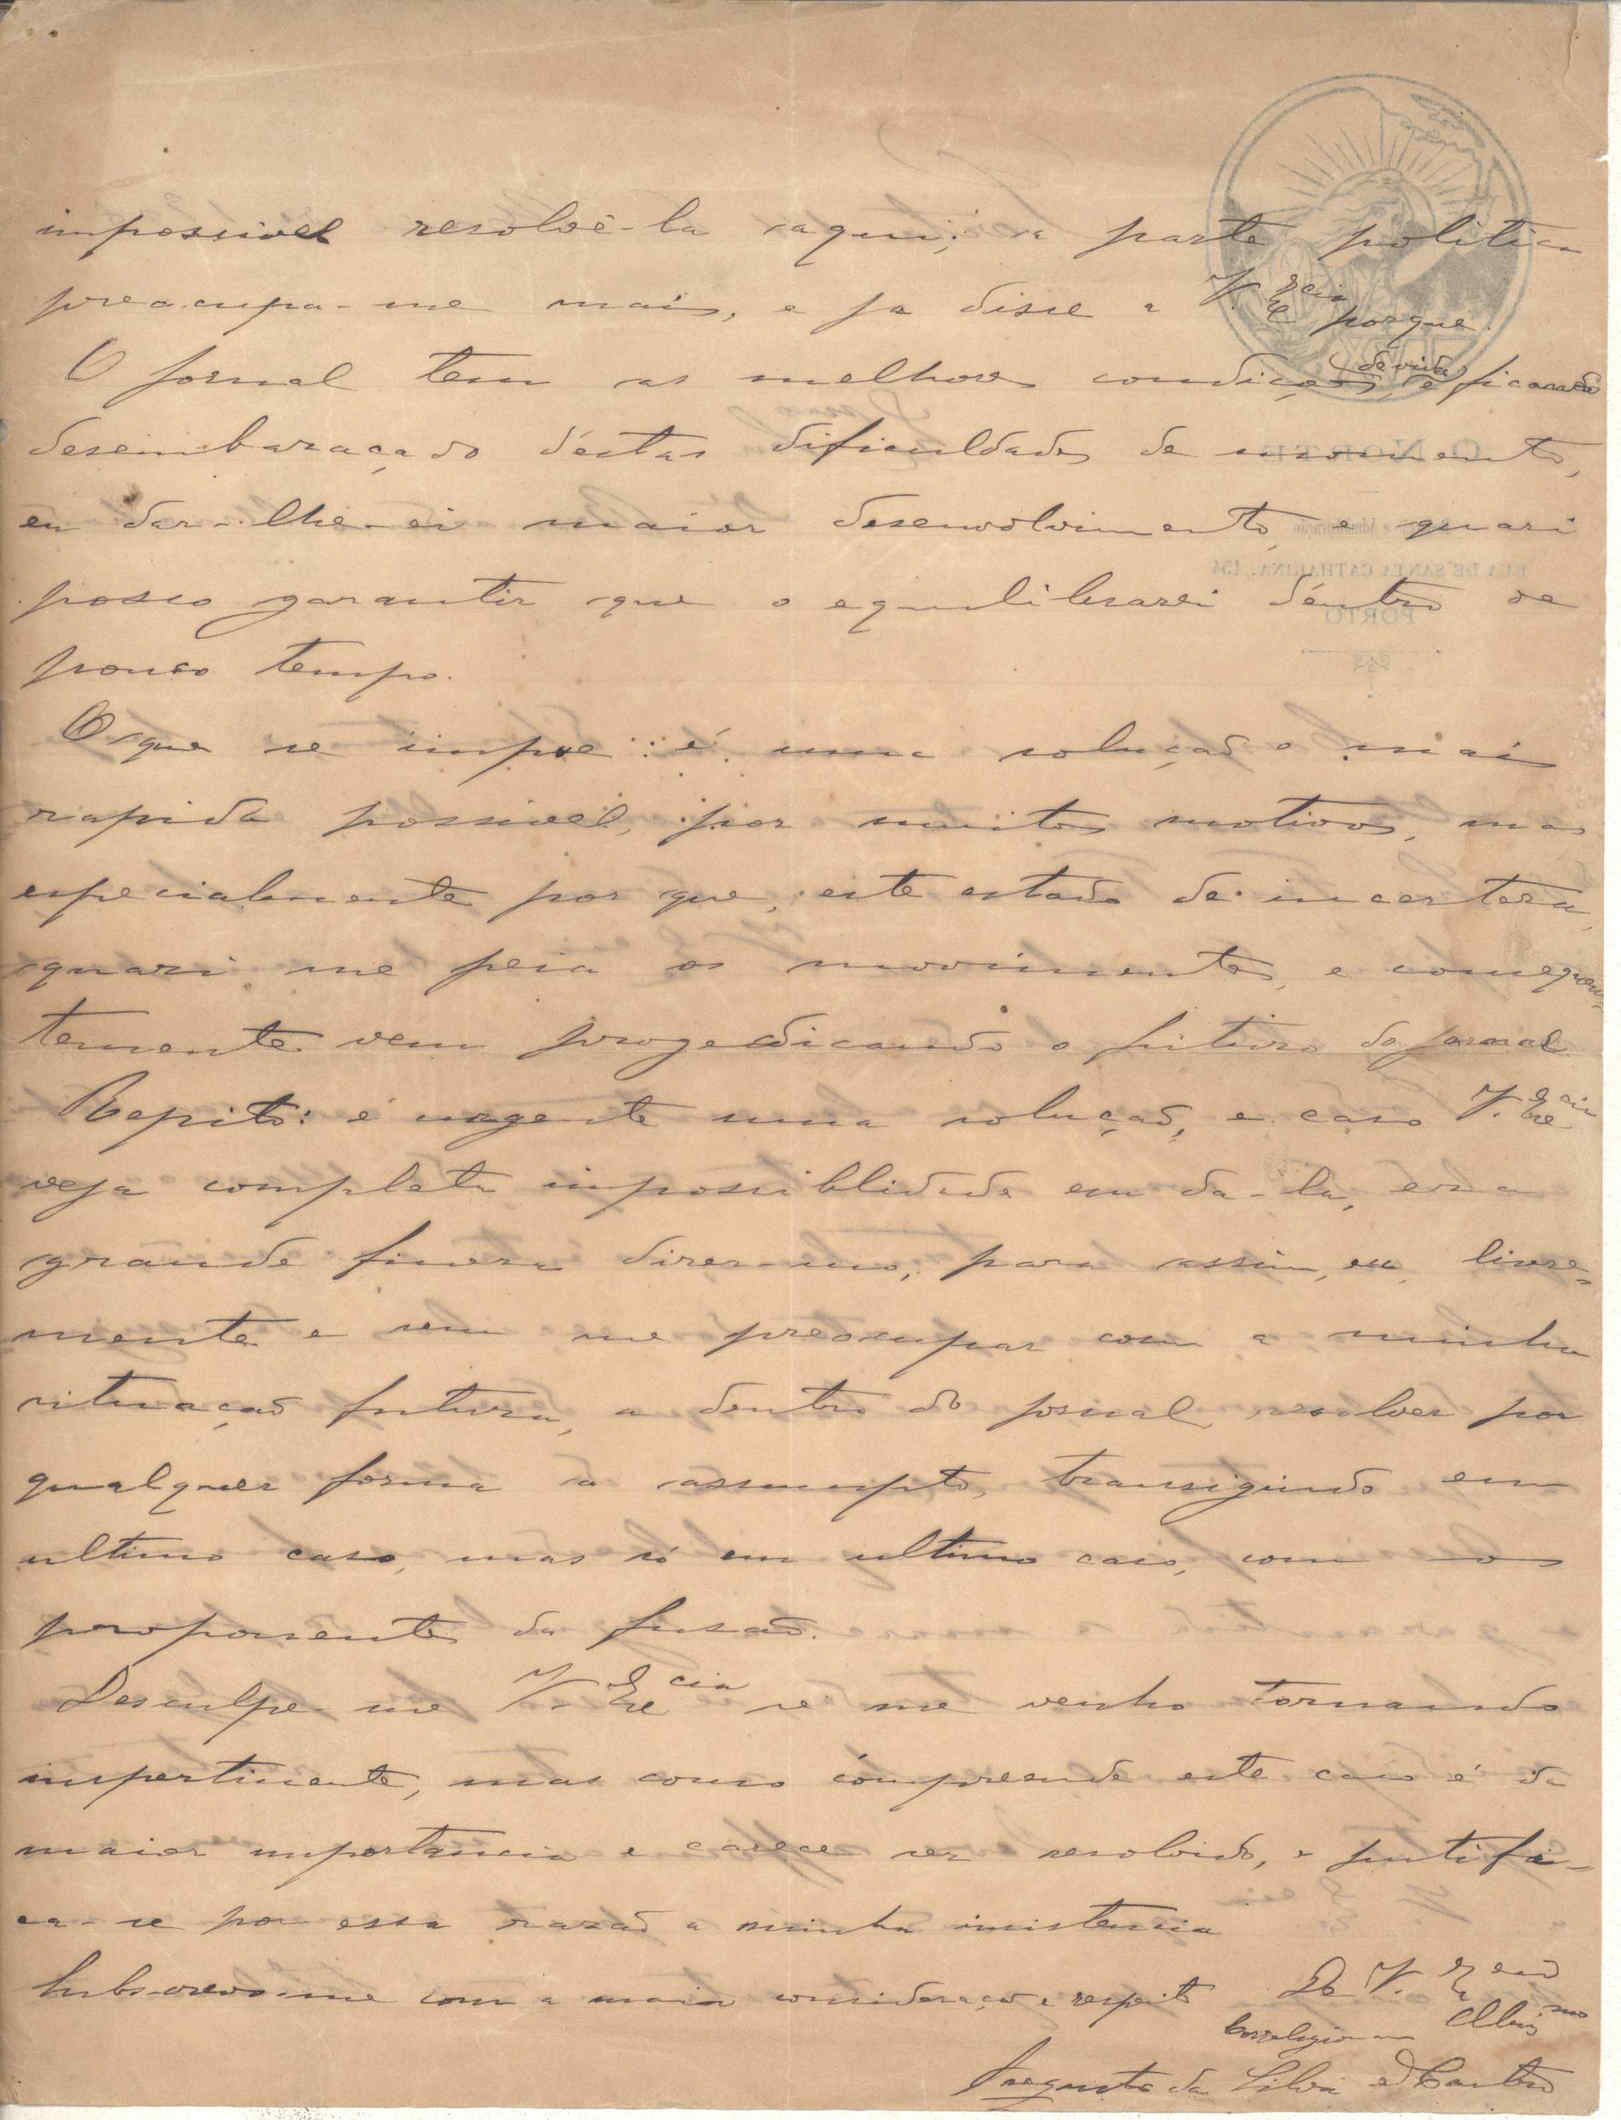 impossivel resolvê-la aqui; a parte politica
preocupa-me mais, e ja disse a V. Excia porque.
O jornal tem as melhores condições de vida, e ficando
desembaraçado d'estas dificuldades de momento,
eu dar-lhe-ei maior desenvolvimento e quasi
posso garantir que o equilibrarei dentro de
pouco tempo.
O que se impõe é uma solução o mais
rapida possivel, por muitos motivos, mas
especialmente por que, este estado de incerteza,
quasi me peia os movimentos, e consequen-
temente vem progedicando o futuro do jornal.
Repito: é urgente uma solução, e caso V. Excia
veja completa impossiblidade em da-la, era
grande fineza dizer-mo, para assim, eu, livre-
mente e sem me preocupar com a minha
situação futura, a dentro do jornal, resolver por
qualquer forma o assumpto, transigindo em
ultimo caso, mas só em ultimo caso, com os
proponentes da fusão.
Desculpe-me V. Excia se me venho tornando
impertinente, mas como compreende este caso é da
maior importancia e carece ser resolvido, e justifi-
ca-se por essa razão a minha insistencia
Subscrevo-me com a maior consideração e respeito
De V. Excia
Correlegionario
Augusto da Silva e Castro
O NORTE
RUA DE SANTA CATHARINA, 154
PORTO